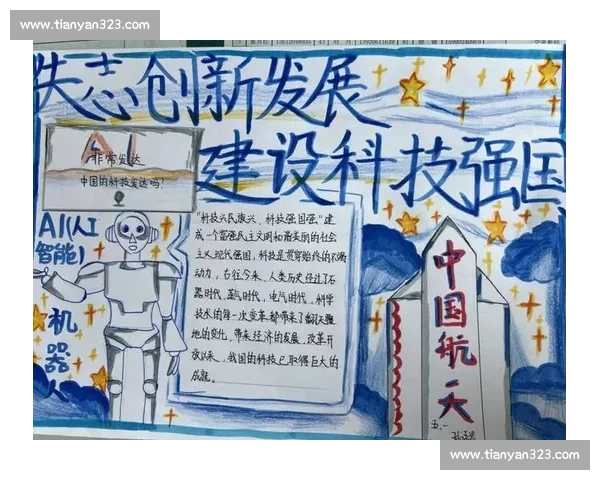 www.tianyan323.com
失志创新发展
建设科技强国
AI
非常发达
中国的科技发达吗?
AI(人工
智能)
机
器
人
"科技兴民族兴,科技强国强."建
成一个富强民主文明和谐美丽的社会
主义现代强国,科技是贯穿始终的不竭
动力,右往今来,人类历史经过了石
器时代,蒸气时代,电气时代,科学
技术的每一次变革都带来了翻天覆
地的变化,带来经济的发展,改革开
放以来,我国的科技已取得巨大的
成就。
中国航天
五.一
www.tianyan323.com